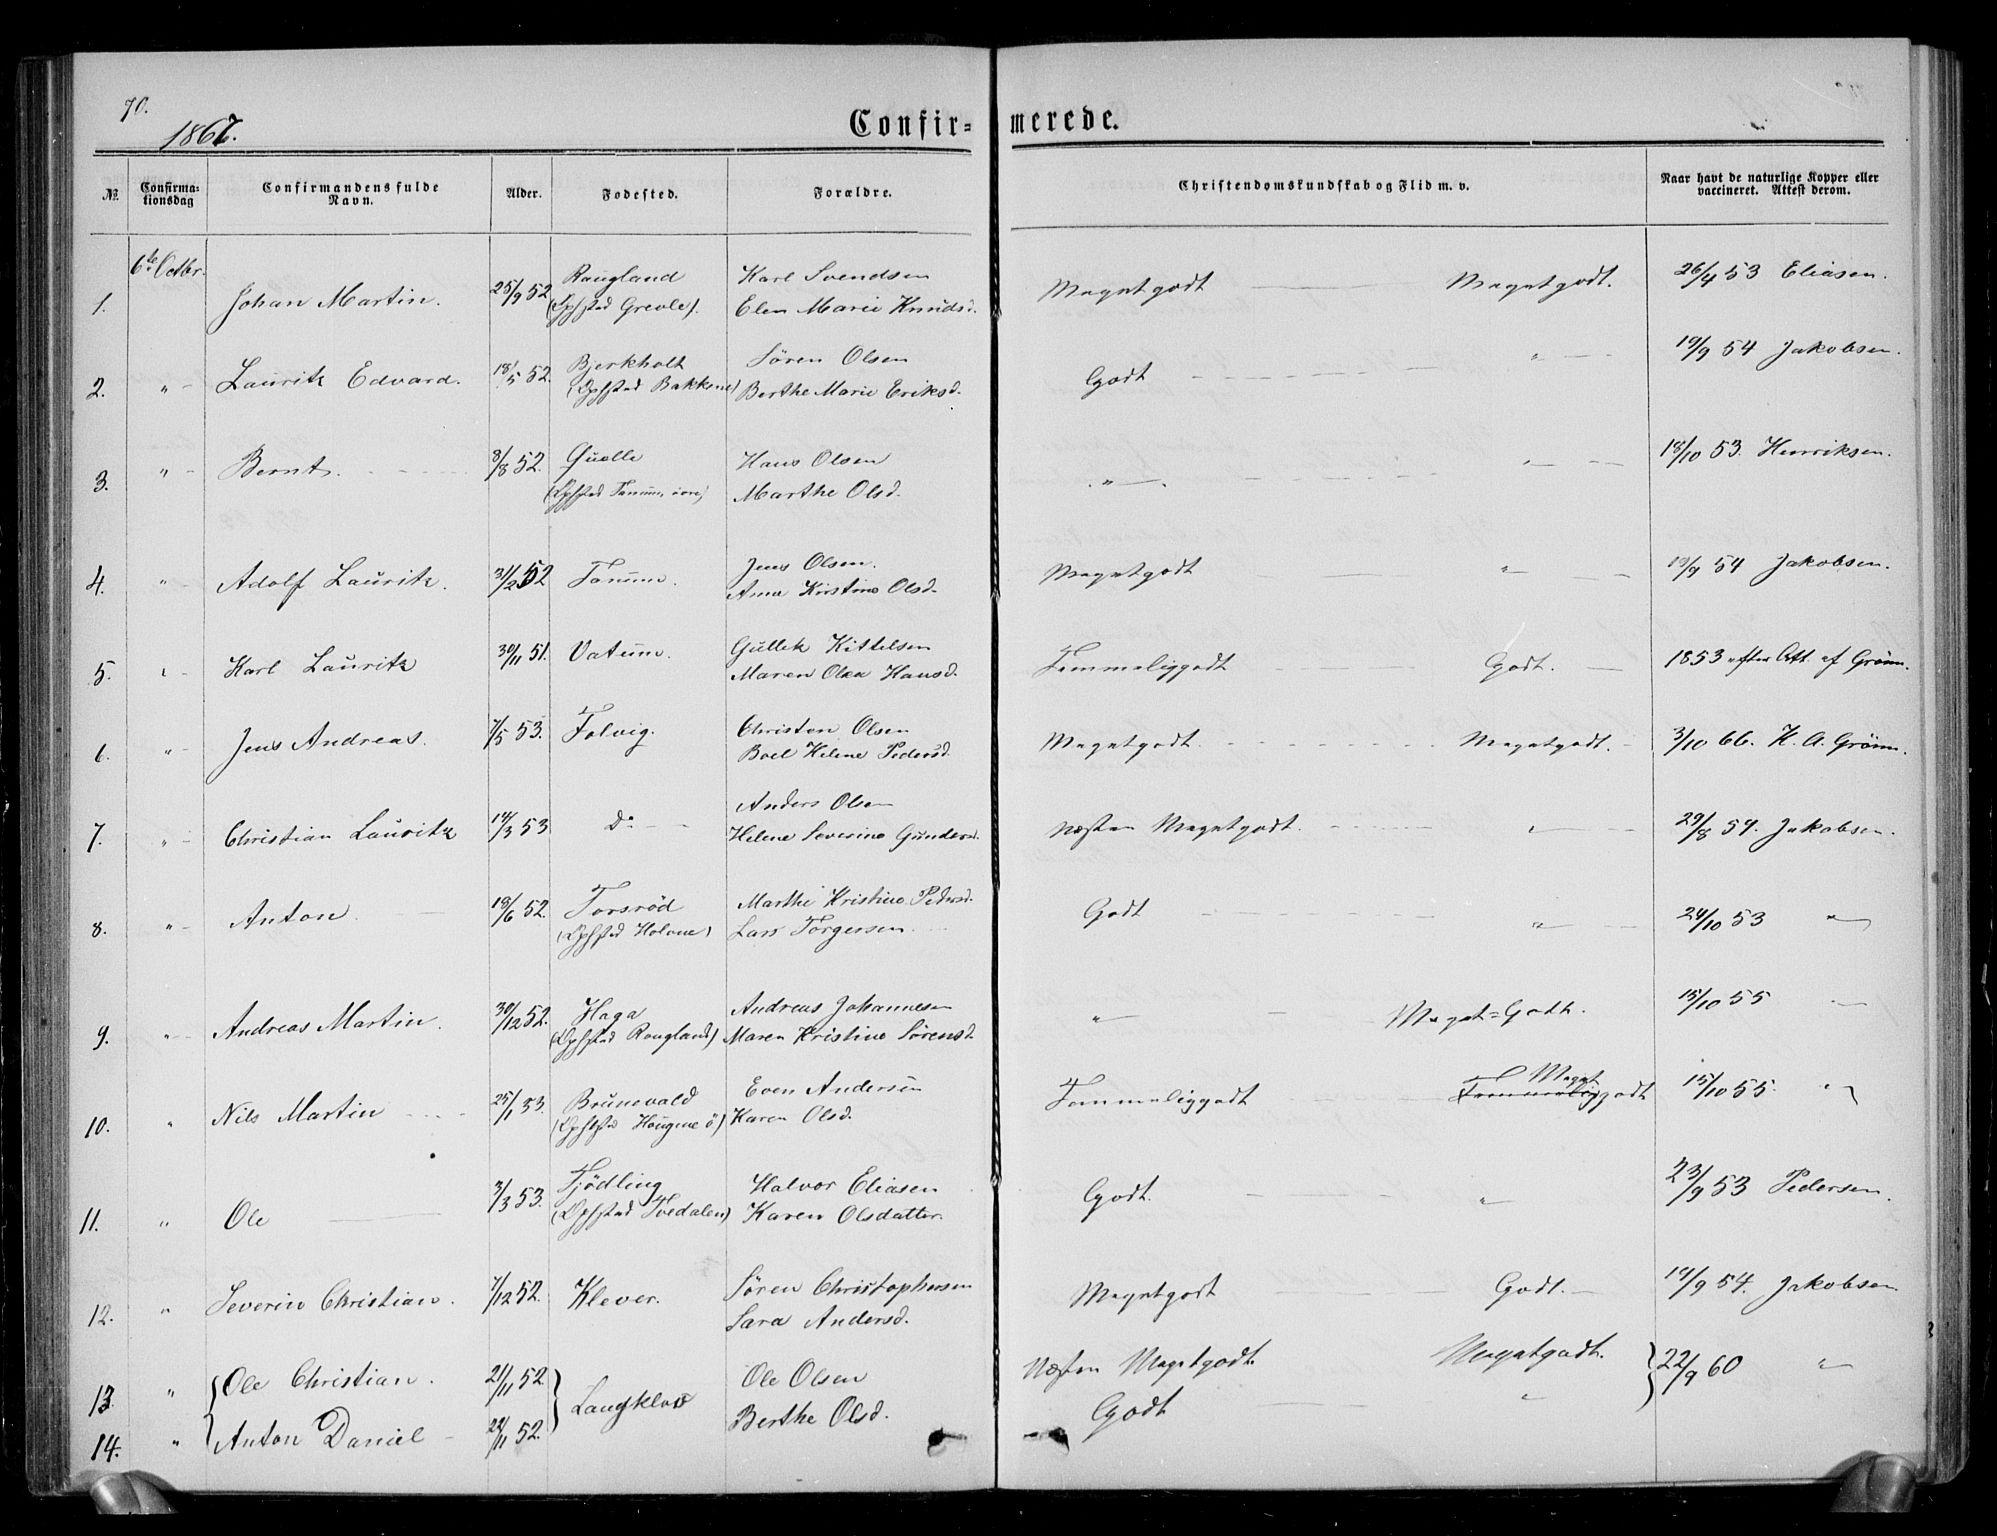 70.
1867.
Confir- merede.
No. Confirma-tionsdag Confirmandens fulde Navn. Alder. Fødested. Forældre. Christendomskundskab og Flid m. v. Naar havt de naturlige Kopper eller vaccineret. Attest derom.
6te Octbr. Raugland Karl Svendsen
1. Johan Martin. 25/9 52. (Opfstad Grevle). Elen Marie Knudsd. Megetgodt Megetgodt. 26/4 53 Eliasen.
Bjerkholt Søren Olsen
2. " Lauritz Edvard. 18/5 52. (Opfstad Bakkene) Berthe Marie Eriksd. Godt " 19/9 54 Jakobsen.
Hans Olsen
3. " Bernt. 8/8 52. Marthe Olsd. " " 18/10 53. Henriksen.
Jens Olsen.
4. " Adolf Lauritz. 31/12 52 Tanum. Anne Kristine Olsd. Megetgodt " 19/9 54 Jakobsen.
Gullek Kittelsen
5. " Karl Lauritz 30/11 51. Vatum. Maren Olea Hansd. Temmeliggodt Godt. 1853 efter Att. af Grønn.
Christen Olsen
6. " Jens Andreas. 7/5 53. Folvig. Boel Helene Pedersd. Megetgodt. Megetgodt. 3/10 66. H. A. Grønn.
Anders Olsen
7. " Christian Lauritz 19/3 53 Do Helene Severine Gundersd. Næsten Megetgodt. " 29/8 54. Jakobsen.
Torsrød Marthe Kristine Pedersd.
8. " Anton 18/6 52. (Opfstad Holmene) Lars Torgersen. Godt " 24/10 53 "
Haga Andreas Johannesen
9. " Andreas Martin. 30/12 52. (Opfstad Raugland) Maren Kristine Sørensd. " Meget=Godt. 15/10 55 "
Brunevald Even Andersen Meget
10. " Nils Martin 25/1 53. (Opfstad Haugene ö) Karen Olsd. Temmeliggodt Temmeliggodt 15/10 55. "
Fjødling Halvor Eliasen
11. " Ole 3/3 53. (Opfstad Tvedalen) Karen Olsdatter. Godt. " 23/9 53 Pedersen.
Søren Christophersen
12. " Severin Christian. 7/12 52. Klever. Sara Andersd. Megetgodt Godt. 19/9 54. Jakobsen
13. " Ole Christian. 21/11 52. Langklov Ole Olsen Næsten Megetgodt. Megetgodt. 22/9 60 "
14. " Anton Daniel 22/11 52. Berthe Olsd. Godt "